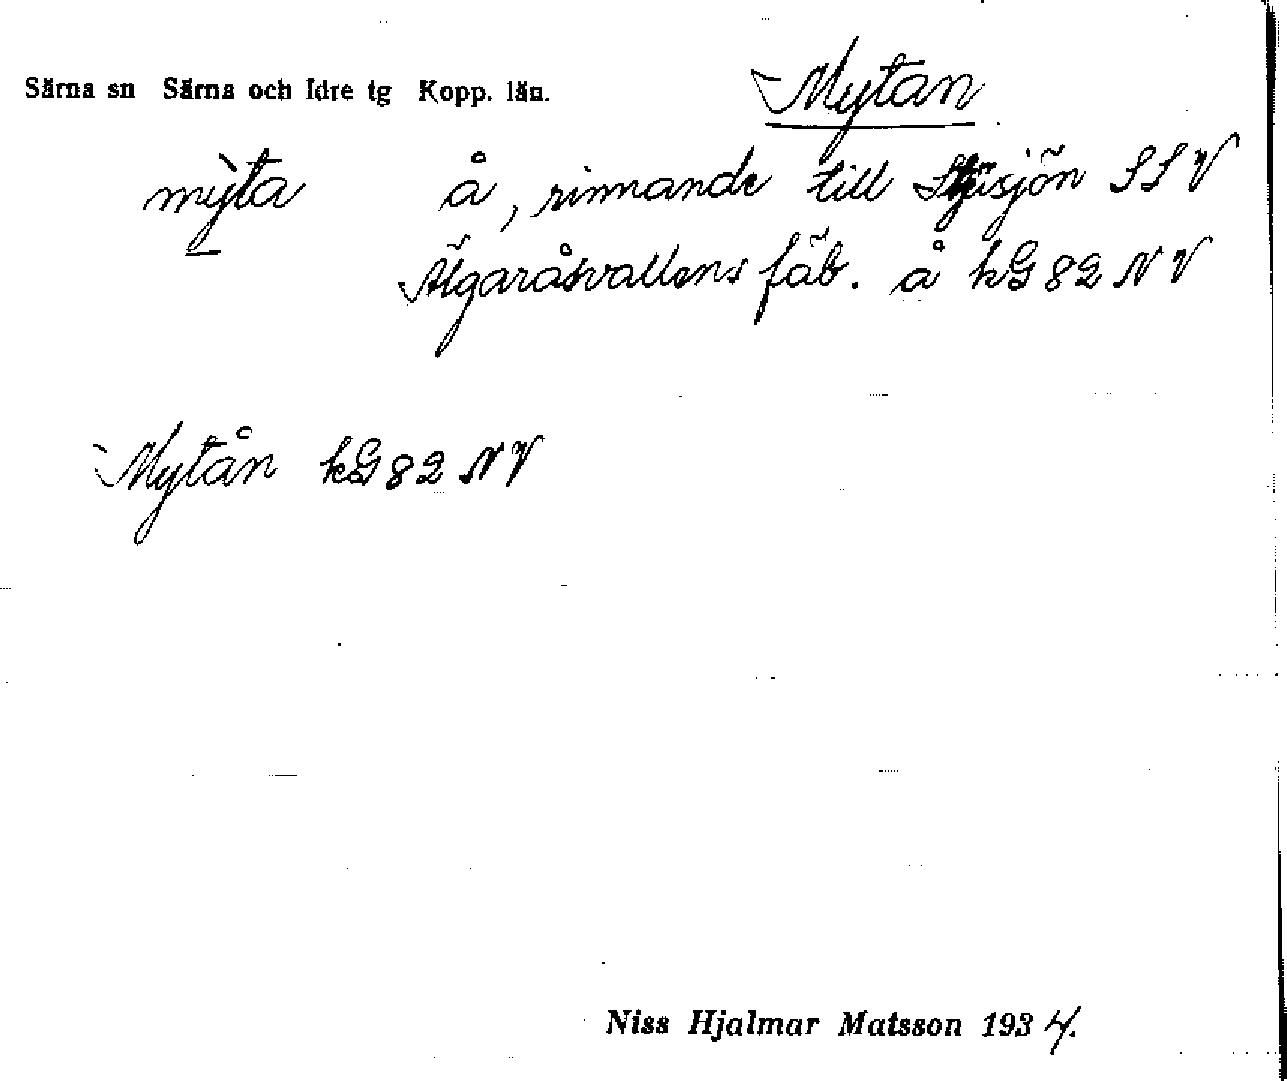 Särna sn Särna och Idre tg Kopp. län.
Mytan
mỳta å, rinnande till SSV
Älgaråsvallens fäb. å kG82NV
Mytån kG82NV
Niss Hjalmar Matsson 1934.